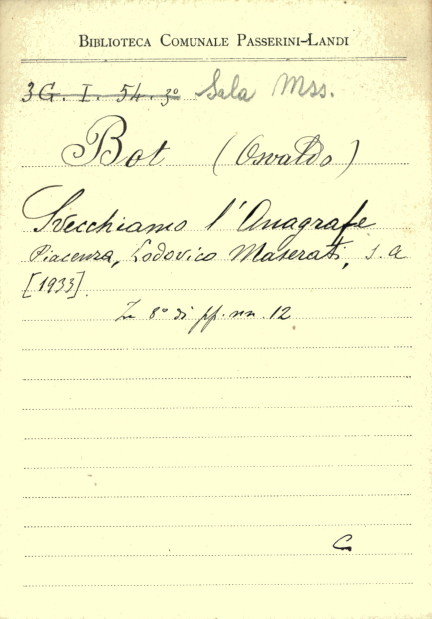 BIBLIOTECA COMUNALE PASSERINI-LANDI
3G. I. 54. 3º Sala Mss.
Bot (Osvaldo)
Svecchiamo l'Anagrafe
Piacenza, Lodovico Maserati, s. a
[1933].
In 8º di pp. nn. 12
C